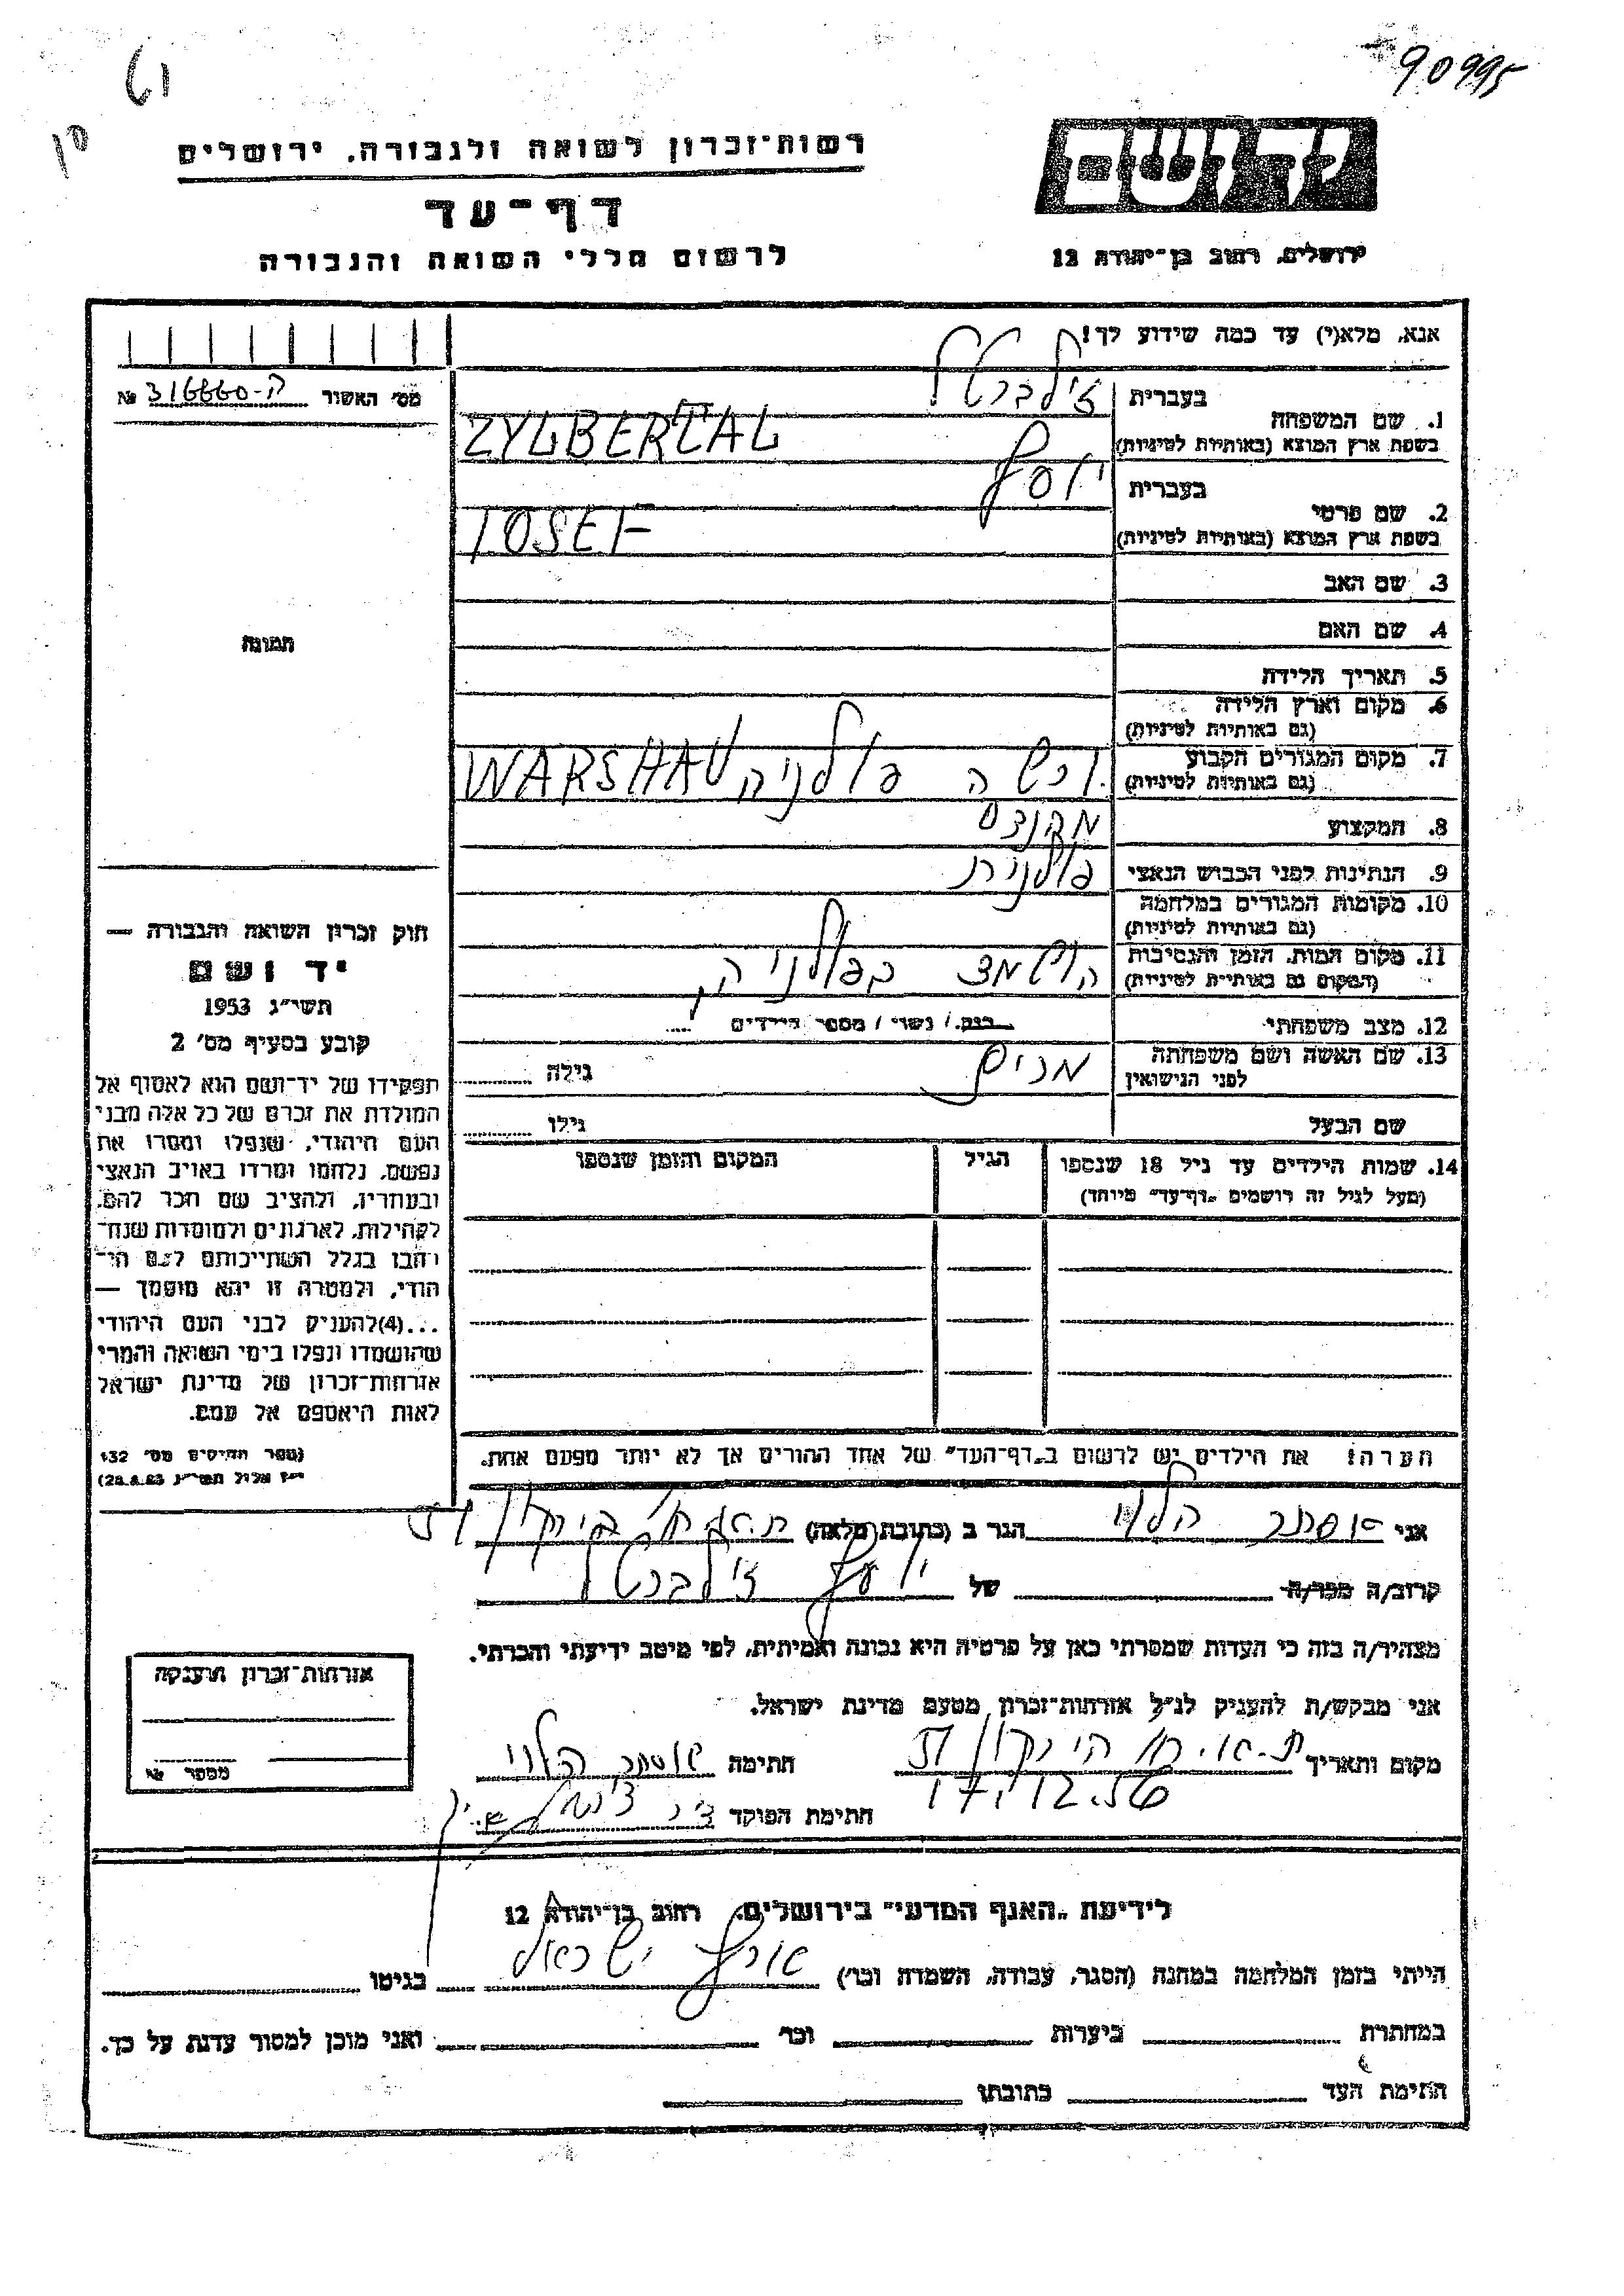 90995
רשות־זכרון לשואה ולגבורה, ירושלים
יד ושם
דף־עד
ירושלים, רחוב בן־יהודה 12
לרשום חללי השואה והגבורה
אנא, מלא(י) עד כמה שידוע לך!
מס' האשור ה-316660 №
1. שם המשפחה
בעברית זילברטל
בשפת ארץ המוצא (באותיות לטיניות) ZYLBERTAL
2. שם פרטי
בעברית יוסף
בשפת ארץ המוצא (באותיות לטיניות) IOSEF
3. שם האב
4. שם האם
תמונה
5. תאריך הלידה
6. מקום וארץ הלידה
(גם באותיות לטיניות)
7. מקום המגורים הקבוע ורשה פולניה WARSHAU
(גם באותיות לטיניות)
8. המקצוע מהנדס
9. הנתינות לפני הכבוש הנאצי פולנית
10. מקומות המגורים במלחמה
(גם באותיות לטיניות)
11. מקום המות, הזמן והנסיבות הושמד בפולניה
(המקום גם באותיות לטיניות)
12. מצב משפחתי רווק / נשוי / מספר הילדים
13. שם האשה ושם משפחתה
לפני הנישואין גילה
שם הבעל גילו
14. שמות הילדים עד גיל 18 שנספו הגיל המקום והזמן שנספו
(מעל לגיל זה רושמים "דף־עד" מיוחד)
חוק זכרון השואה והגבורה —
יד ושם
תשי"ג 1953
קובע בסעיף מס' 2
תפקידו של יד־ושם הוא לאסוף אל
המולדת את זכרם של כל אלה מבני
העם היהודי, שנפלו ומסרו את
נפשם, נלחמו ומרדו באויב הנאצי
ובעוזריו, ולהציב שם וזכר להם,
לקהילות, לארגונים ולמוסדות שנח־
רבו בגלל השתייכותם לעם הי־
הודי, ולמטרה זו יהא מוסמך —
...(4)להעניק לבני העם היהודי
שהושמדו ונפלו בימי השואה והמרי
אזרחות־זכרון של מדינת ישראל
לאות היאספם אל עמם.
(ספר החוקים מס' 132
י"ז אלול תשי"ג 28.8.53)
הערה: את הילדים יש לרשום ב"דף־העד" של אחד ההורים אך לא יותר מפעם אחת.
אני אסתר הלוי הגר ב (כתובת מלאה) ת.א. רח' הירקון
קרוב/ה מכר/ה של יוסף זילברטל
מצהיר/ה בזה כי העדות שמסרתי כאן על פרטיה היא נכונה ואמיתית, לפי מיטב ידיעתי והכרתי.
אני מבקש/ת להעניק לנ"ל אזרחות־זכרון מטעם מדינת ישראל.
מקום ותאריך ת.א. רח' הירקון
17.12.56
חתימה אסתר הלוי
חתימת הפוקד
אזרחות־זכרון הוענקה
מספר №
לידיעת "האגף המדעי" בירושלים, רחוב בן־יהודה 12
הייתי בזמן המלחמה במחנה (הסגר, עבודה, השמדה וכו') ארץ ישראל בגיטו
במחתרת ביערות וכו' ואני מוכן למסור עדות על כך.
חתימת העד כתובתו